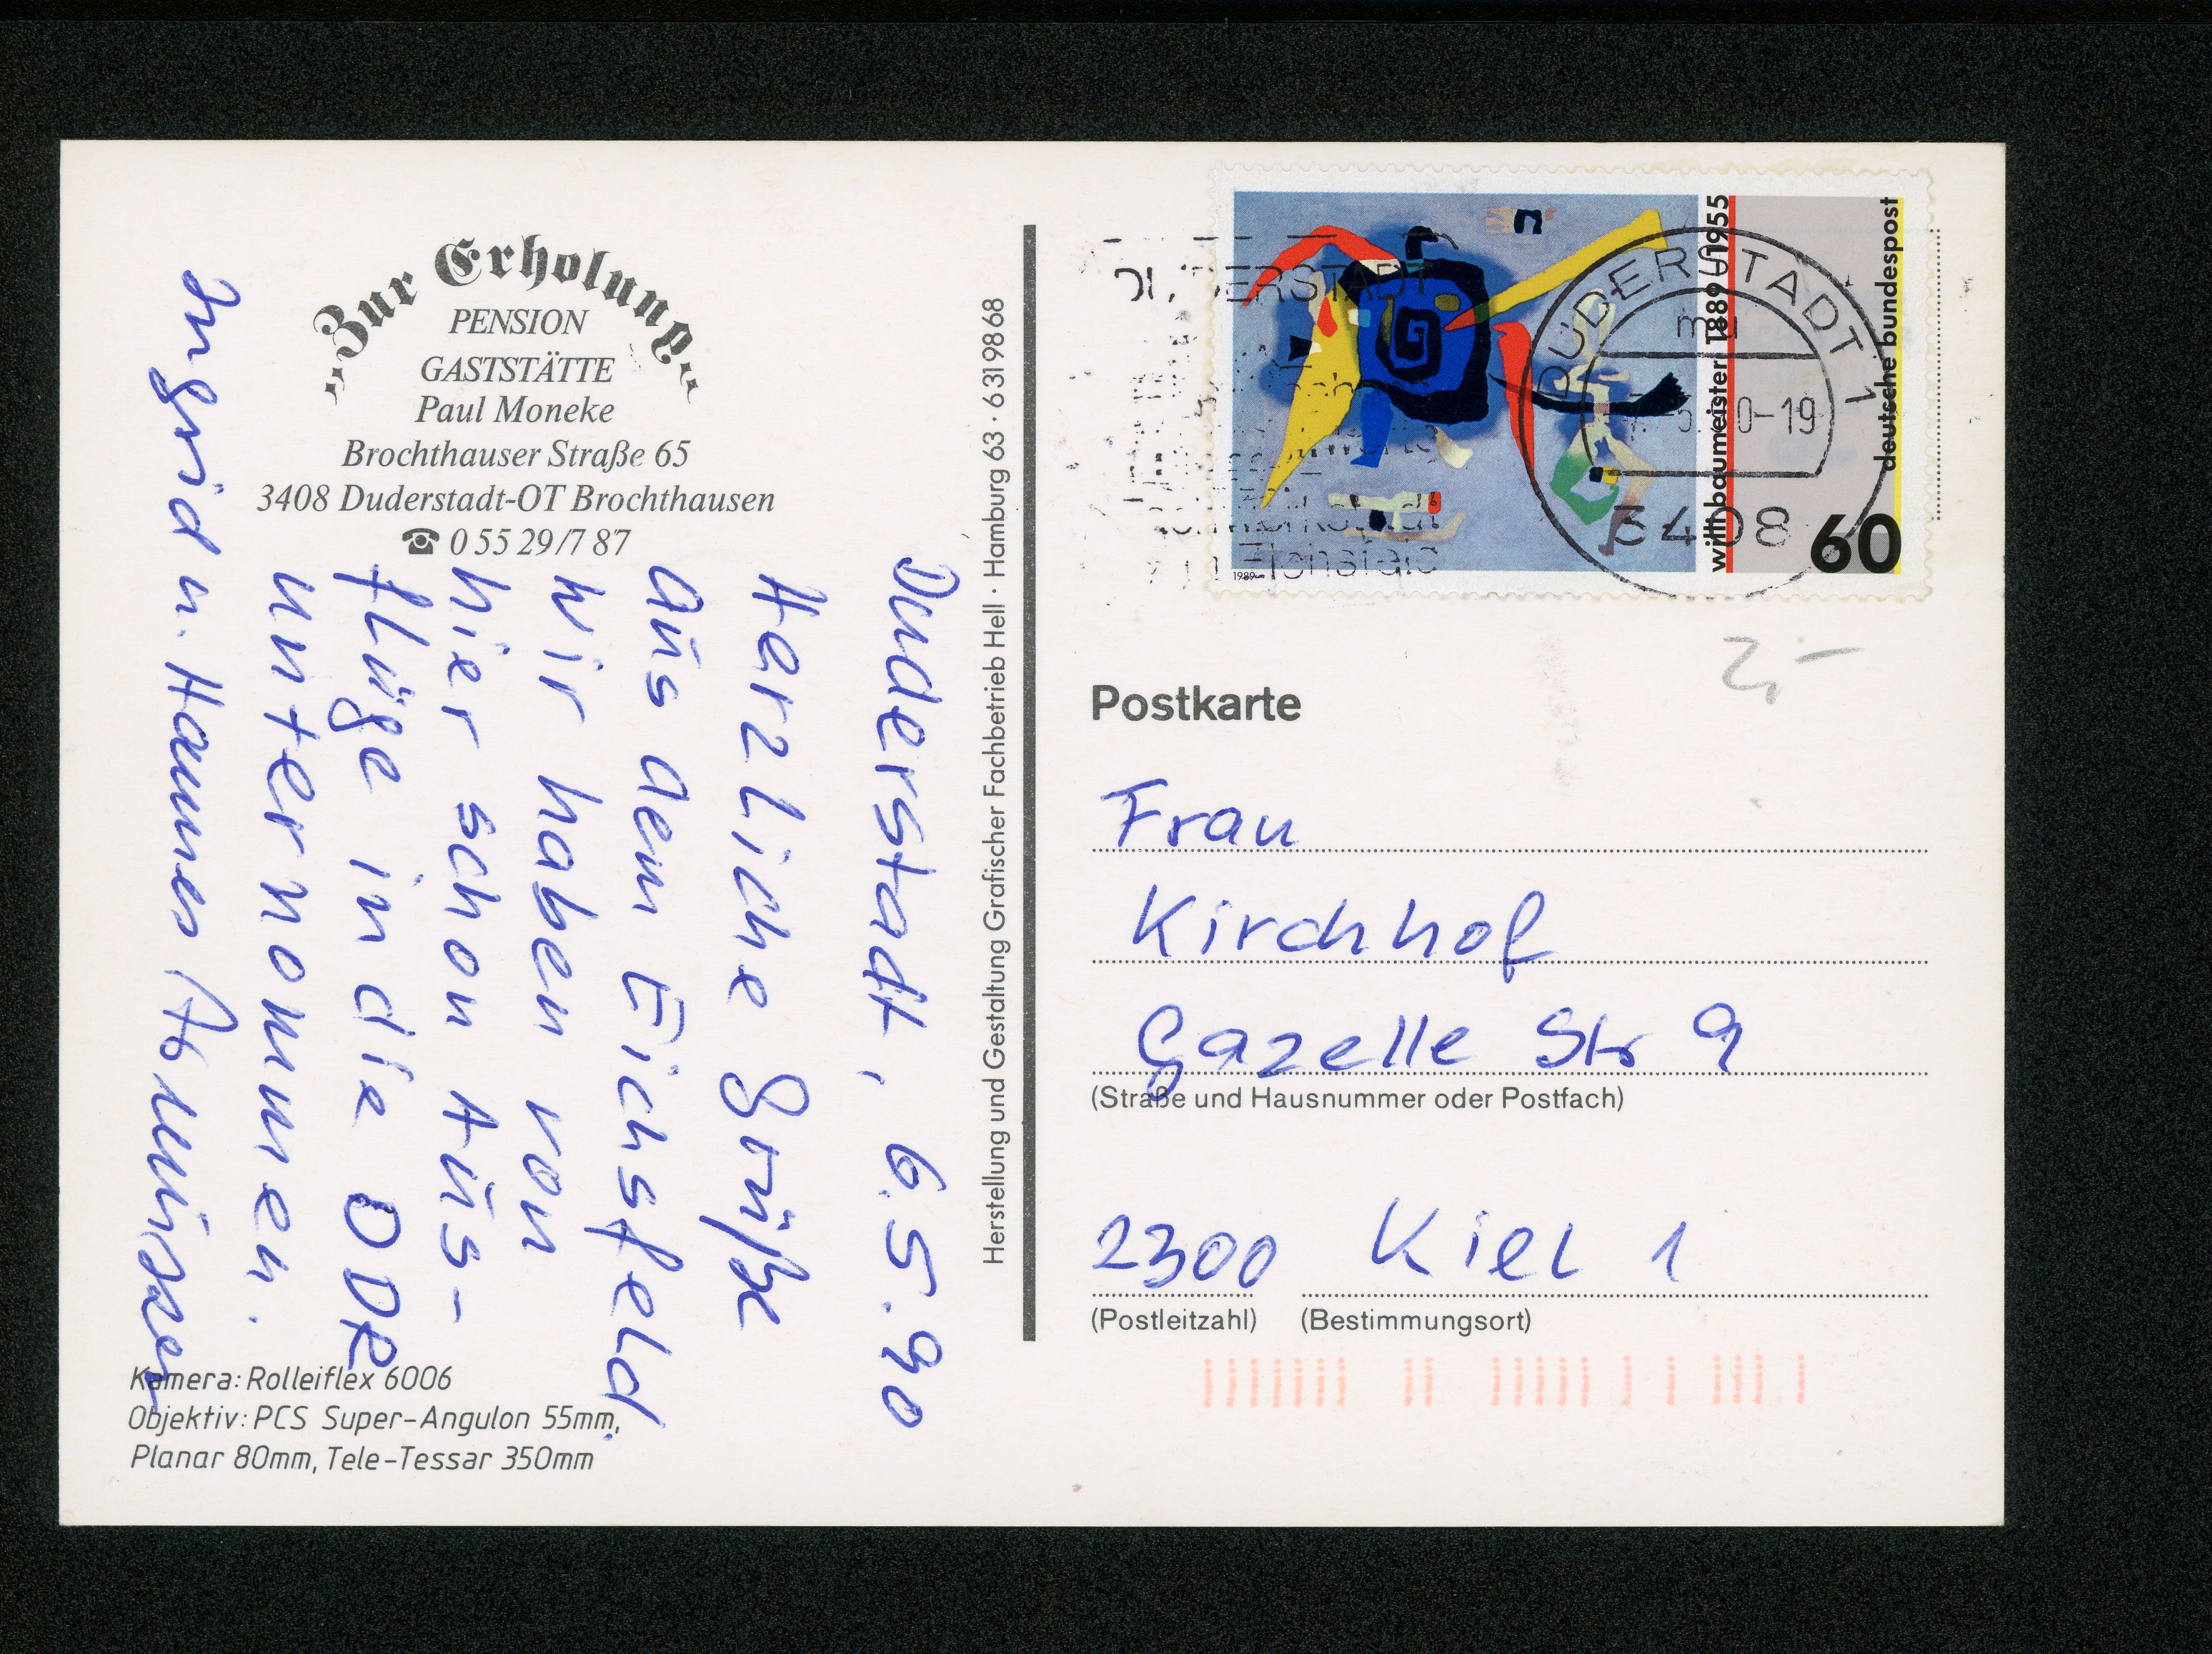 „Zur Erholung“
PENSION
GASTSTÄTTE
Paul Moneke
Brochthauser Straße 65
3408 Duderstadt-OT Brochthausen
☎ 0 55 29/7 87
Duderstadt, 6.5.90
Herzliche Grüße
aus dem Eichsfeld.
Wir haben von
hier schon Aus-
flüge in die DDR
unternommen.
Ingrid u. Hannes
Kamera: Rolleiflex 6006
Objektiv: PCS Super-Angulon 55mm,
Planar 80mm, Tele-Tessar 350mm
Herstellung und Gestaltung Grafischer Fachbetrieb Hell · Hamburg 63 · 6 31 98 68
willi baumeister 1889 1955
deutsche bundespost
60
1989
DUDERSTADT 1
mu
0-19
3408
DUDERSTADT
2,-
Postkarte
Frau
Kirchhof
Gazelle Str 9
(Straße und Hausnummer oder Postfach)
2300 Kiel 1
(Postleitzahl) (Bestimmungsort)